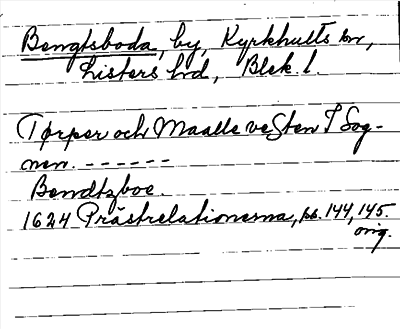 Bengtsboda, by, Kyrkhults sn,
Listers hd, Blek. l.
Tørper och Maalle ve Sten I Sog-
nen. ------
Bendtzboe.
1624 Prästrelationerna, ss. 144, 145.
orig.